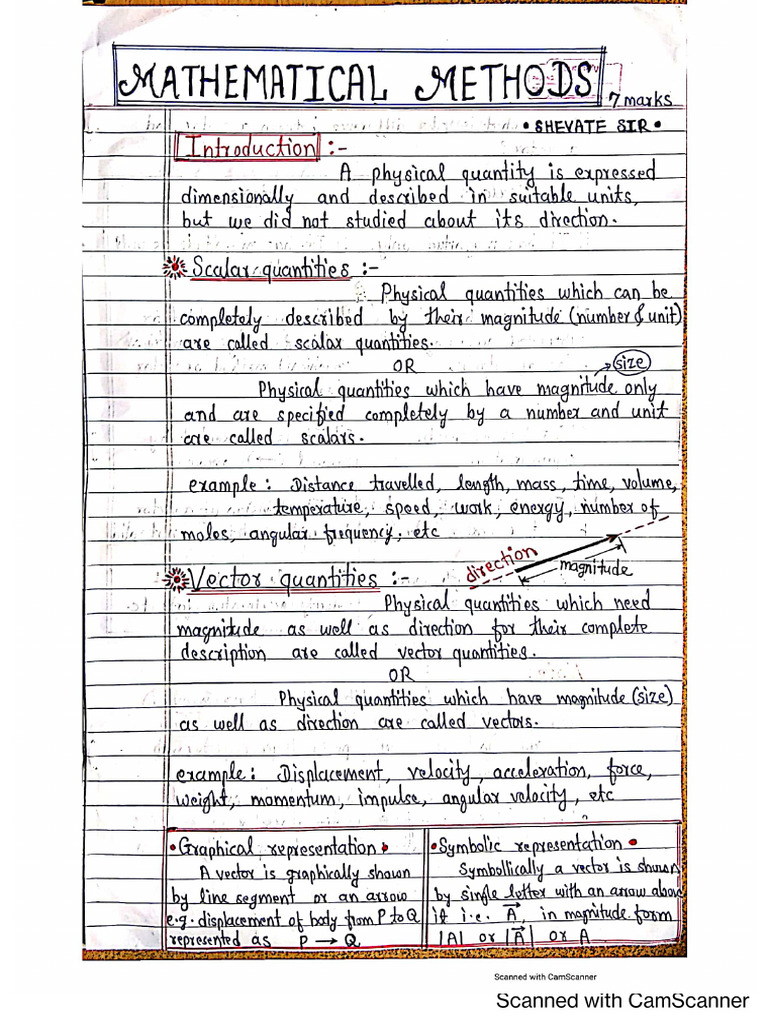 MATHEMATICAL METHODS
7 marks
• SHEVATE SIR •
Introduction :-
A physical quantity is expressed
dimensionally and described in suitable units,
but we did not studied about its direction.
Scalar quantities :-
Physical quantities which can be
completely described by their magnitude (number & unit)
are called scalar quantities.
OR
size
Physical quantities which have magnitude only
and are specified completely by a number and unit
are called scalars.
example : Distance travelled, length, mass, time, volume,
temperature, speed, work, energy, number of
moles, angular frequency, etc
direction
magnitude
Vector quantities :-
Physical quantities which need
magnitude as well as direction for their complete
description are called vector quantities.
OR
Physical quantities which have magnitude (size)
as well as direction are called vectors.
example : Displacement, velocity, acceleration, force,
weight, momentum, impulse, angular velocity, etc
• Graphical representation •
A vector is graphically shown
by line segment or an arrow
e.g. displacement of body from P to Q
represented as P → Q
• Symbolic representation •
Symbollically a vector is shown
by single letter with an arrow above
it i.e. A⃗, in magnitude form
|A| or |A⃗| or A
Scanned with CamScanner
Scanned with CamScanner